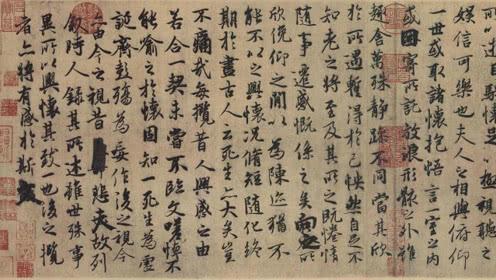 所以遊目騁懷足以極視聽之
娛信可樂也夫人之相與俯仰
一世或取諸懷抱悟言一室之內
或因寄所託放浪形骸之外雖
趣舍萬殊靜躁不同當其欣
於所遇蹔得於己怏然自足不
知老之將至及其所之既惓情
隨事遷感慨係之矣向之所
欣俛仰之間以為陳迹猶不
能不以之興懷況脩短隨化終
期於盡古人云死生亦大矣豈
不痛哉每攬昔人興感之由
若合一契未嘗不臨文嗟悼不
能喻之於懷固知一死生為虛
誕齊彭殤為妄作後之視今
亦由今之視昔悲夫故列
敘時人錄其所述雖世殊事
異所以興懷其致一也後之攬
者亦將有感於斯文